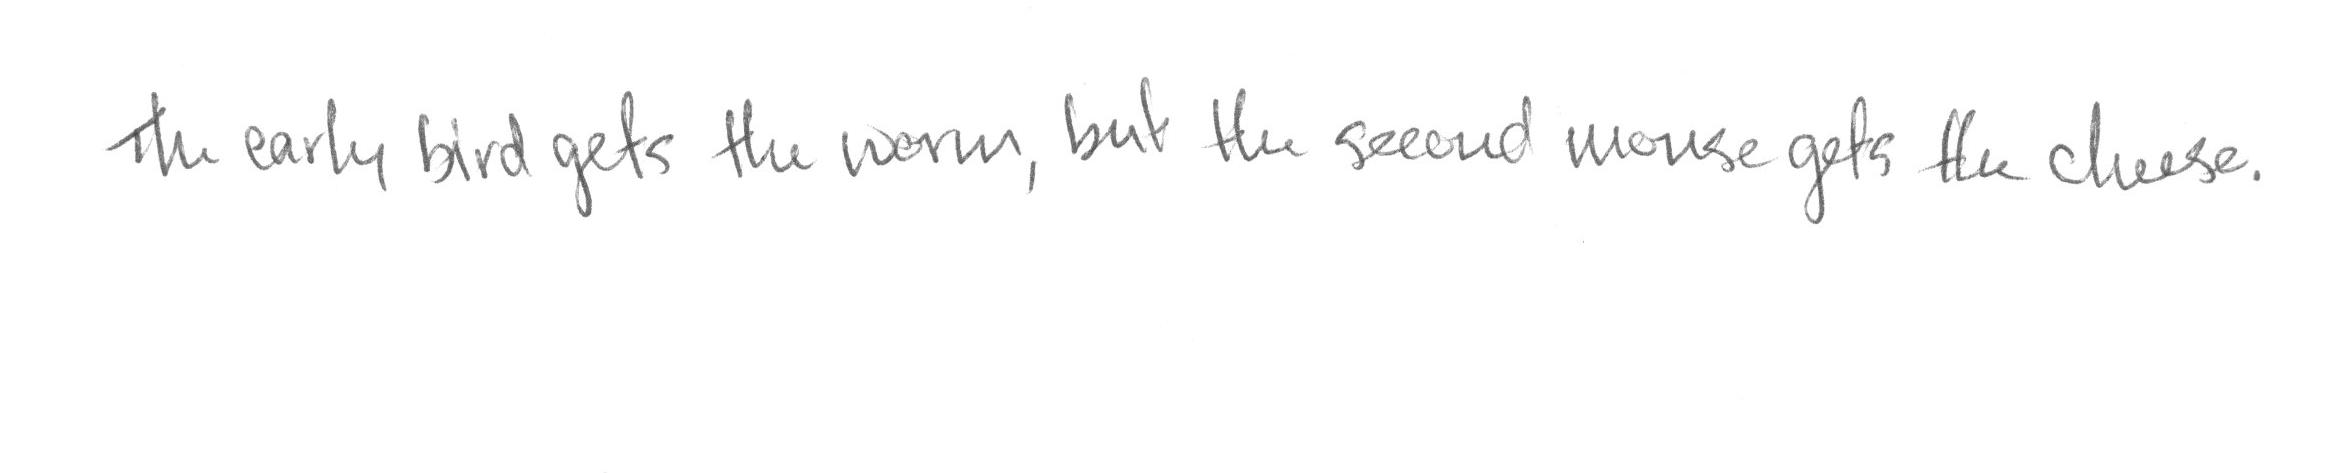 The early bird gets the worm, but the second mouse gets the cheese.